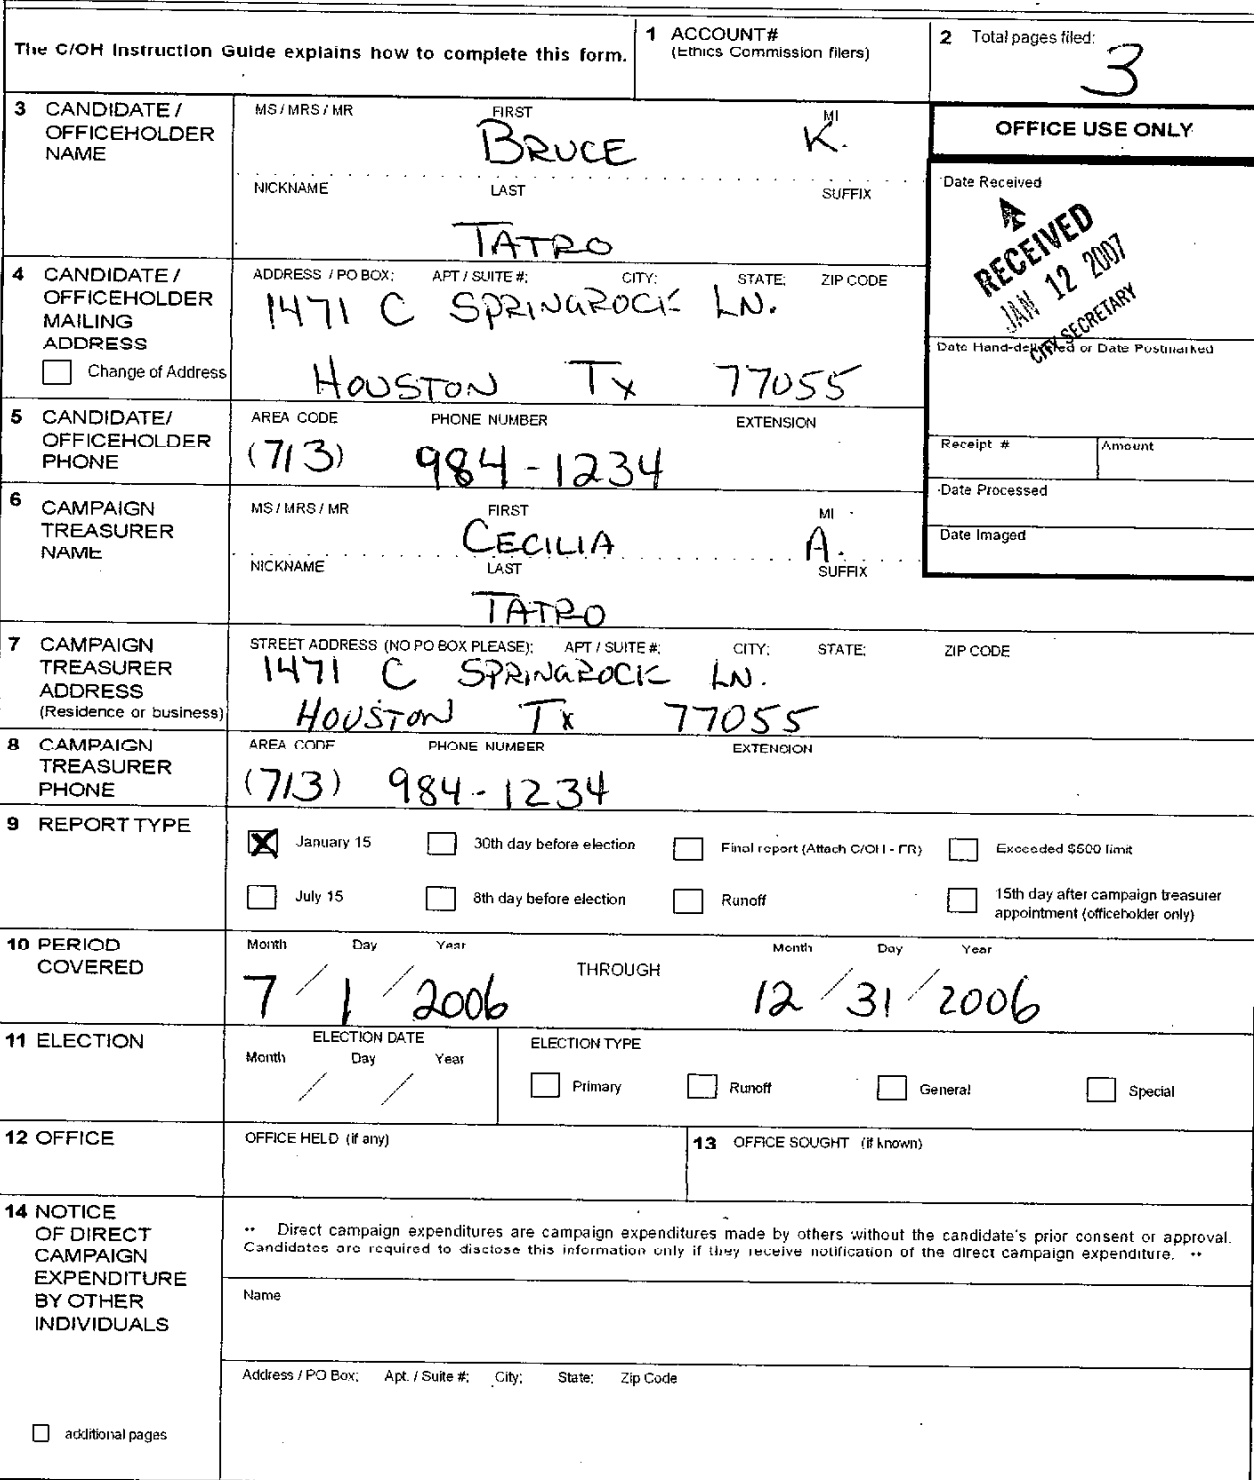 The C/OH Instruction Guide explains how to complete this form.
1 ACCOUNT#
(Ethics Commission filers)
2 Total pages filed:
3
3 CANDIDATE /
OFFICEHOLDER
NAME
MS / MRS / MR FIRST MI
BRUCE K.
NICKNAME LAST SUFFIX
TATRO
OFFICE USE ONLY
Date Received
RECEIVED
JAN 12 2007
CITY SECRETARY
Date Hand-delivered or Date Postmarked
Receipt # Amount
Date Processed
Date Imaged
4 CANDIDATE /
OFFICEHOLDER
MAILING
ADDRESS
Change of Address
ADDRESS / PO BOX; APT / SUITE #; CITY; STATE; ZIP CODE
1471 C SPRINGROCK LN.
HOUSTON TX 77055
5 CANDIDATE/
OFFICEHOLDER
PHONE
AREA CODE PHONE NUMBER EXTENSION
(713) 984-1234
6 CAMPAIGN
TREASURER
NAME
MS / MRS / MR FIRST MI
CECILIA A.
NICKNAME LAST SUFFIX
TATRO
7 CAMPAIGN
TREASURER
ADDRESS
(Residence or business)
STREET ADDRESS (NO PO BOX PLEASE); APT / SUITE #; CITY; STATE; ZIP CODE
1471 C SPRINGROCK LN.
HOUSTON TX 77055
8 CAMPAIGN
TREASURER
PHONE
AREA CODE PHONE NUMBER EXTENSION
(713) 984-1234
9 REPORT TYPE
January 15 30th day before election Final report (Attach C/OH - FR) Exceeded $500 limit
July 15 8th day before election Runoff 15th day after campaign treasurer
appointment (officeholder only)
10 PERIOD
COVERED
Month Day Year THROUGH Month Day Year
7 / 1 / 2006 12 / 31 / 2006
11 ELECTION
ELECTION DATE
Month Day Year
/ /
ELECTION TYPE
Primary Runoff General Special
12 OFFICE
OFFICE HELD (if any)
13 OFFICE SOUGHT (if known)
14 NOTICE
OF DIRECT
CAMPAIGN
EXPENDITURE
BY OTHER
INDIVIDUALS
•• Direct campaign expenditures are campaign expenditures made by others without the candidate's prior consent or approval.
Candidates are required to disclose this information only if they receive notification of the direct campaign expenditure. ••
Name
Address / PO Box; Apt. / Suite #; City; State; Zip Code
additional pages